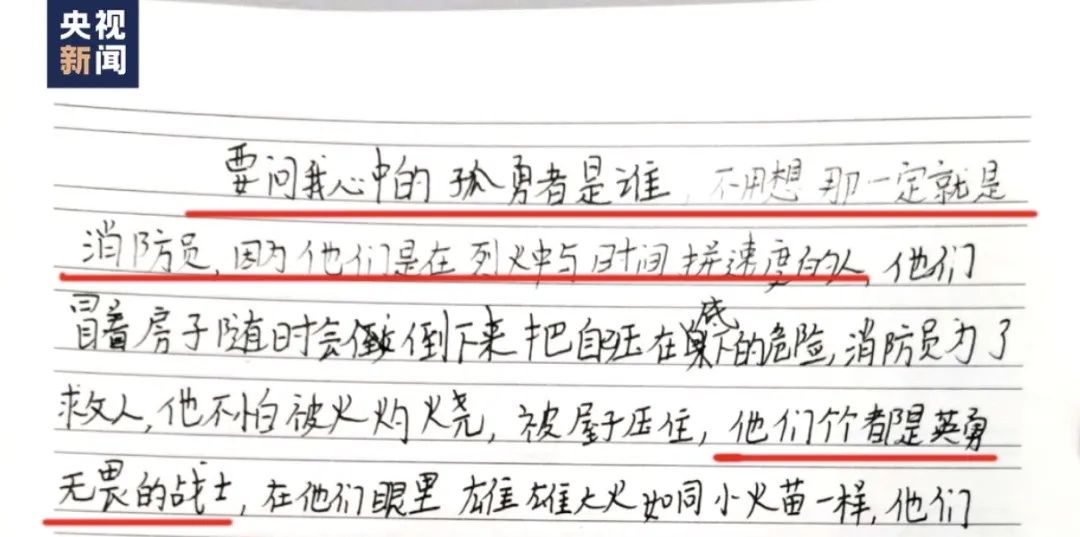 央视
新闻
要问我心中的孤勇者是谁,不用想那一定就是
消防员,因为他们是在烈火中与时间拼速度的人,他们
冒着房子随时会倒下来把自己压在底下的危险,消防员为了
救人,他不怕被火灼烧,被屋子压住,他们个个都是英勇
无畏的战士,在他们眼里雄雄大火如同小火苗一样,他们